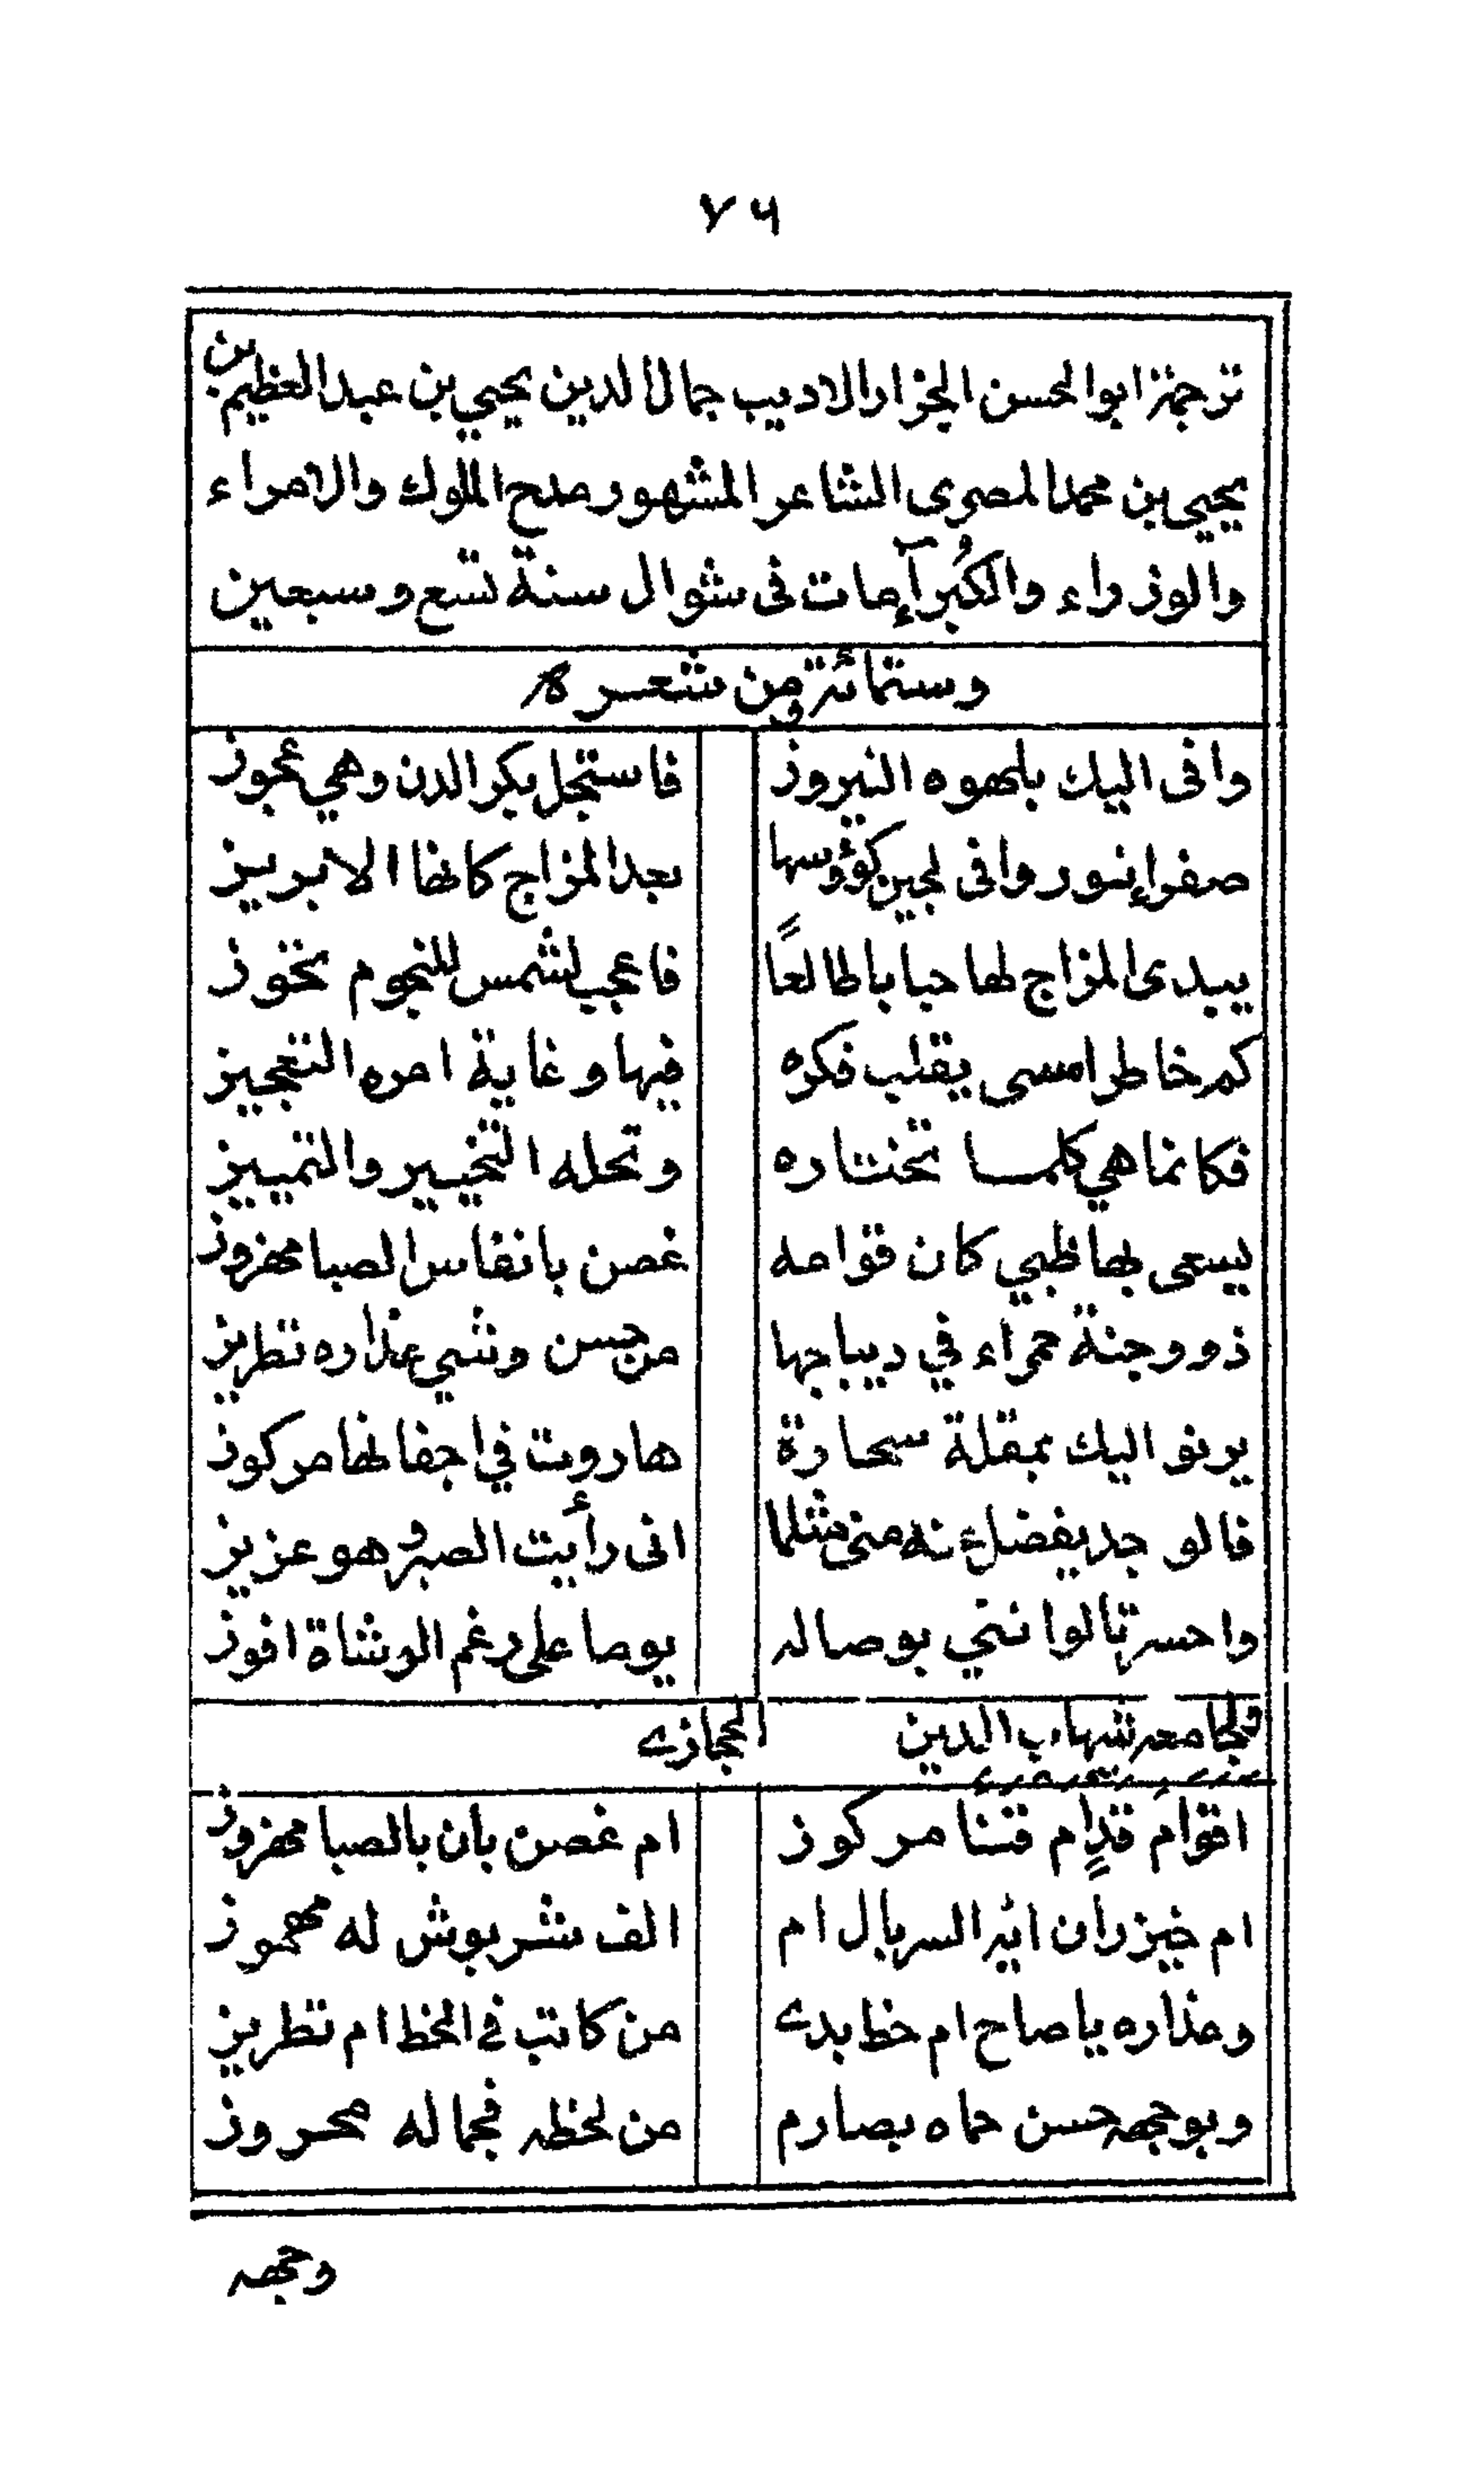 ٧٦
ترجمة ابو الحسن الجزار الاديب جمال الدين يحيي بن عبد العظيم بن
يحيي بن محمد المصرى الشاعر المشهور مدح الملوك والامراء
والوزراء والكُبرآء مات فى شوال سنة تسع وسبعين
وستمائة ومن شعره
وافى اليك بلهوه النيروز فاستجل بكر الدن وهي عجوز
صفراء نور وافى لجين كؤوسها بعد المزاج كانها الابريز
يبدى المزاج لها حبابا طالعاً فاعجب لشمس للنجوم تحوز
كم خاطر امسى يقلب فكره فيها وغاية امره التعجيز
فكانما هي كلمسا تختاره وتحله التخيير والتمييز
يسعى بها ظبي كان قوامه غصن بانفاس الصبا مهزوز
ذو وجنة حمراء في ديباجها من حسن وشي عذاره تطريز
يرنو اليك بمقلة سحارة هاروت في اجفانها مركوز
قالو جد يفضل عنه منى مثلما انى رأيت الصبر وهو عزيز
واحسرتا لو اننى بوصاله يوما على رغم الوشاة افوز
ولجامعه شهاب الدين الحجازى
اقوام قدٍ ام قنًا مركوز ام غصن بان بالصبا مهزوز
ام خيزران ائه السربال ام الف شربوش له مهموز
وعذاره يا صاح ام خط بدى من كاتب فى الخط ام تطريز
وبوجهه حسن حماه بصارم من لحظه فجماله محروز
وجهه